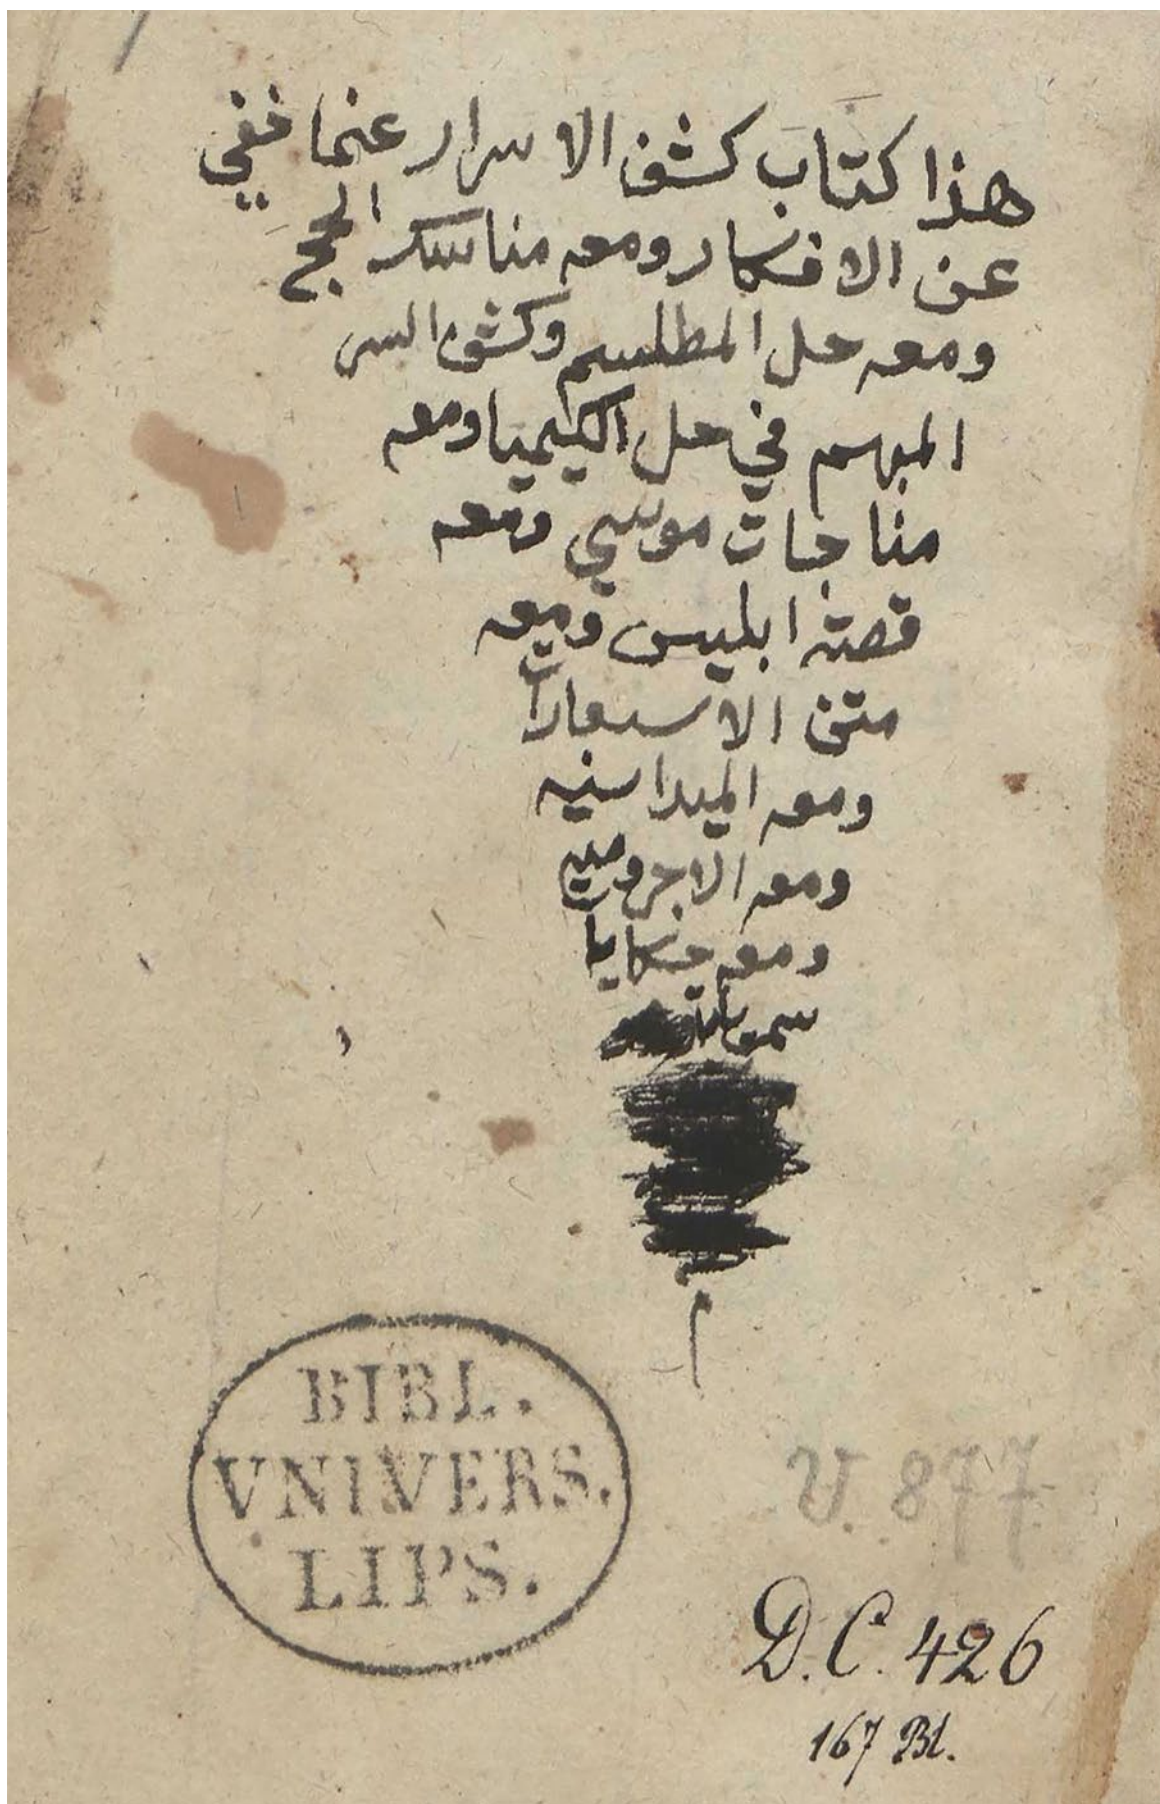 هذا كتاب كشف الاسرار عنما خفي
عن الافكار ومعه مناسك الحج
ومعه حل المطلسم وكشف السر
المبهم في حل الكيميا ومعه
مناجات موسي ومعه
قصة ابليس ومعه
متن الاسعارات
ومعه الميدانيه
ومعه الاجروميه
ومعه حكايا
BIBL.
VNIVERS.
LIPS.
V. 877
D.C. 426
167 Bl.